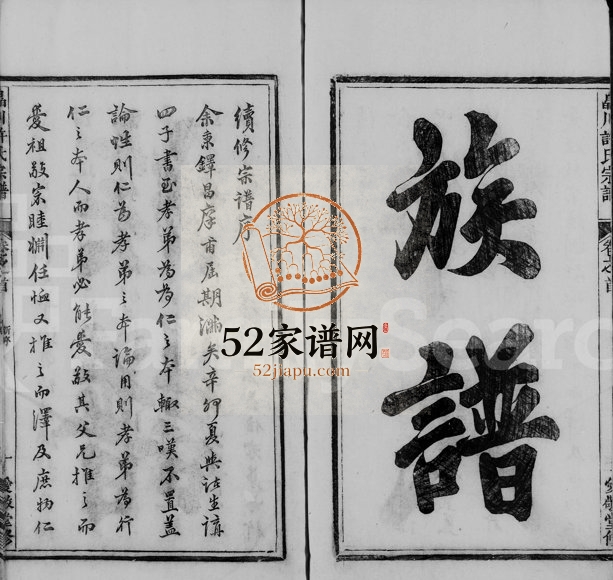 族譜
昌川許氏宗譜
續修宗譜序
余秉鐸昌庠首屆期滿矣辛卯夏與諸生講
四子書至孝弟為為仁之本輒三嘆不置蓋
論性則仁為孝弟之本論用則孝弟為行
仁之本人而孝弟必能愛敬其父兄推之而
愛祖敬宗睦婣任恤又推之而澤及庶物仁
昌川許氏宗譜
52家谱网
52jiapu.com
FamilySearch